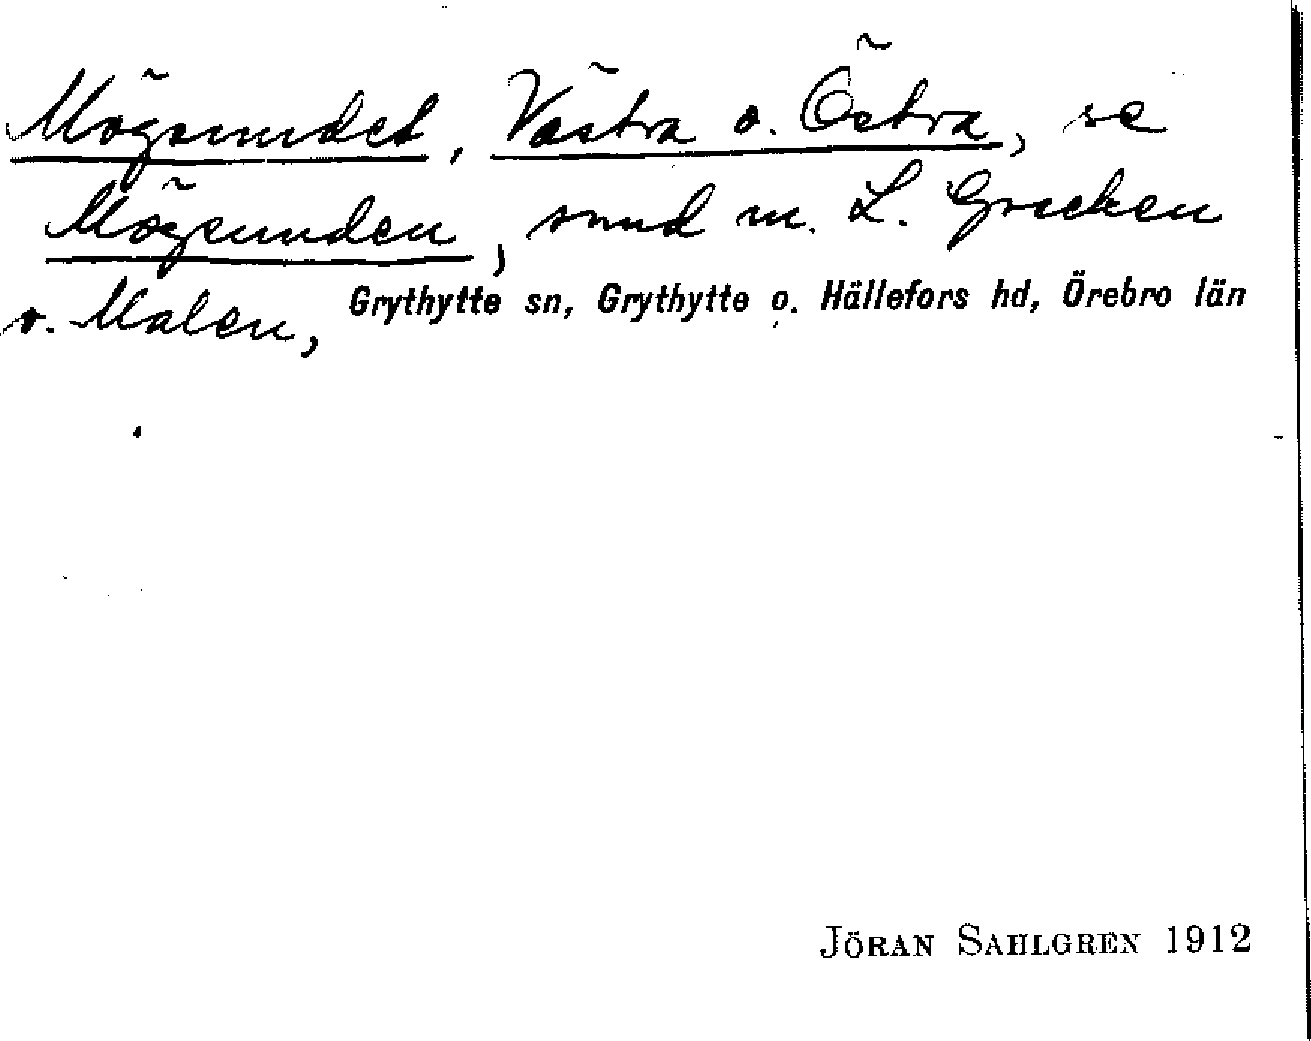 Mögsundet, Västra o. Östra, se
Mögsunden, sund m. L. Grecken
o. Malen, Grythytte sn, Grythytte o. Hällefors hd, Örebro län
JÖRAN SAHLGREN 1912